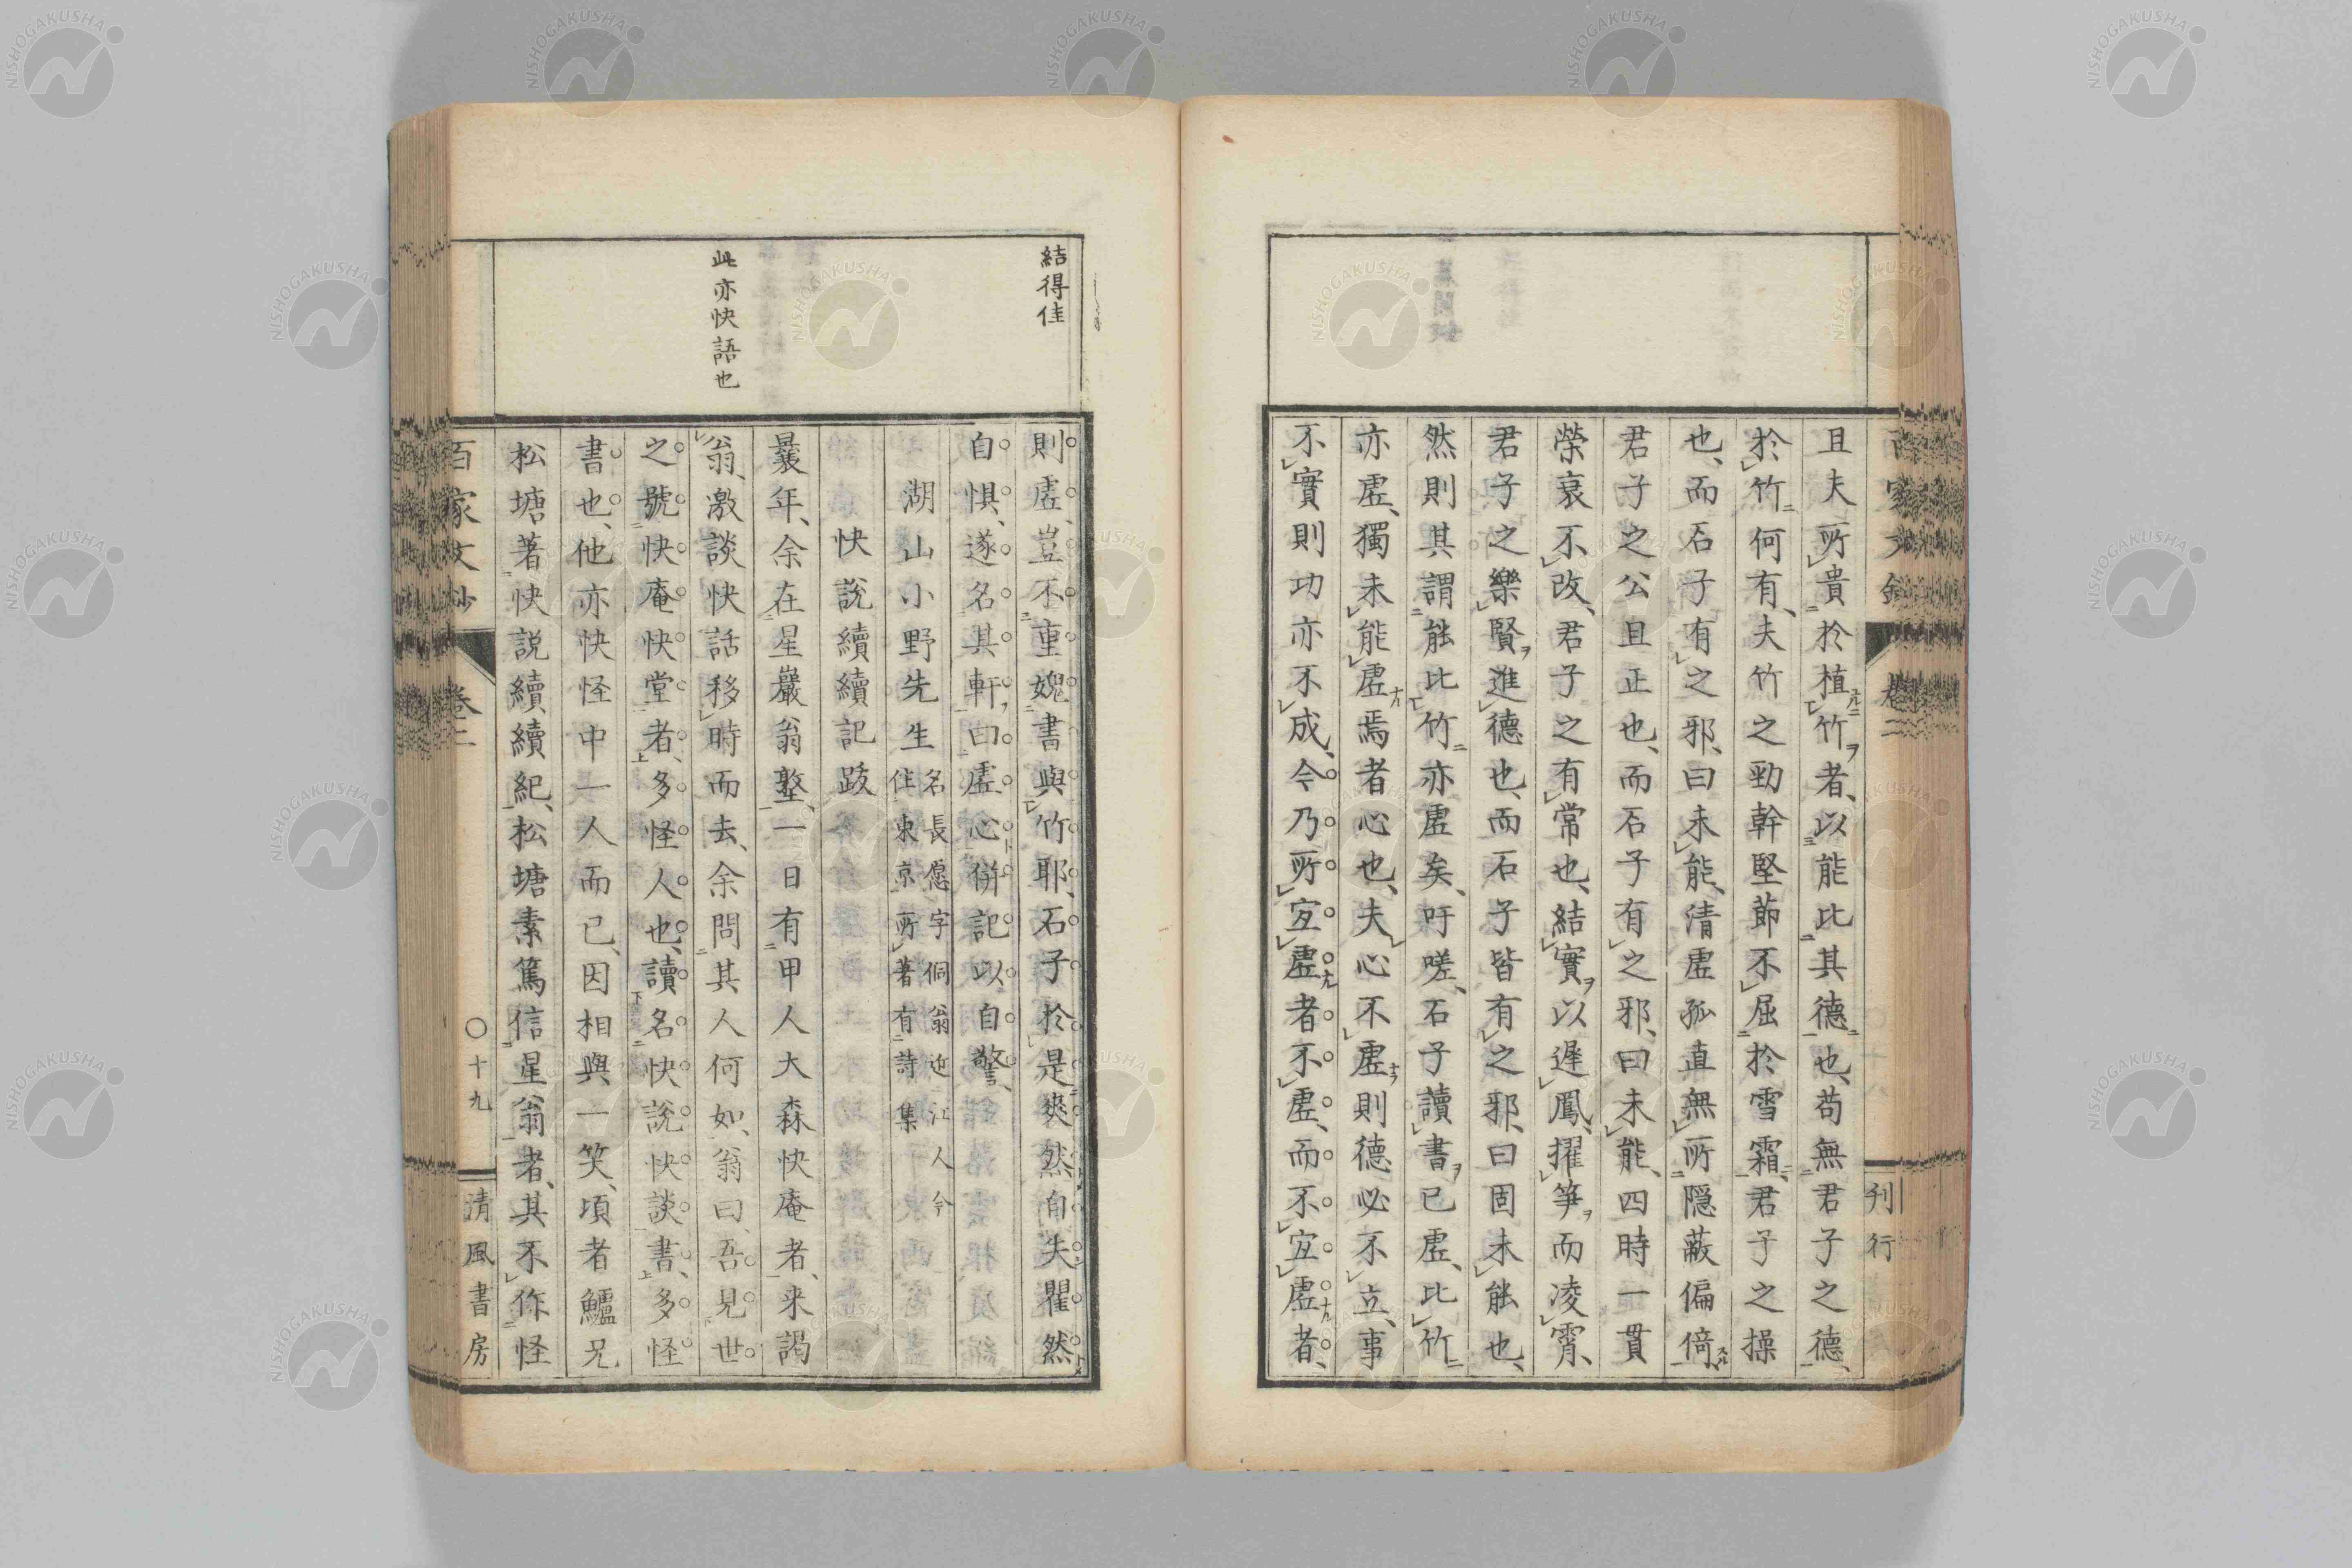 且夫所貴於植竹者、以能比其德也、苟無君子之德、
於竹何有、夫竹之勁幹堅節不屈於雪霜、君子之操
也、而石子有之邪、曰未能、清虛孤直無所隱蔽偏倚、
君子之公且正也、而石子有之邪、曰未能、四時一貫
榮衰不改、君子之有常也、結實以遲鳳、擢笋而凌霄、
君子之樂賢進德也、而石子皆有之邪、曰固未能也、
然則其謂能比竹亦虛矣、吁嗟、石子讀書已虛、比竹
亦虛、獨未能虛焉者心也、夫心不虛則德必不立、事
不實則功亦不成、今乃所宜虛者不虛、而不宜虛者、
卷二
刊行
結得佳
此亦快語也
則虛、豈不重媿書與竹耶、石子於是爽然自失瞿然
自惧、遂名其軒曰虛心、併記以自警、
湖山小野先生 名長愿字侗翁近江人今
住東京所著有詩集
快說續續記跋
曩年、余在星巖翁塾、一日有甲人大森快庵者、来謁
翁、激談快話移時而去、余問其人何如、翁曰、吾見世
之號快庵快堂者、多怪人也、讀名快說快談書、多怪
書也、他亦快怪中一人而已、因相與一笑、頃者鱸兄
松塘著快説續續紀、松塘素篤信星翁者、其不作怪
百家文抄
卷二
〇十九
清風書房